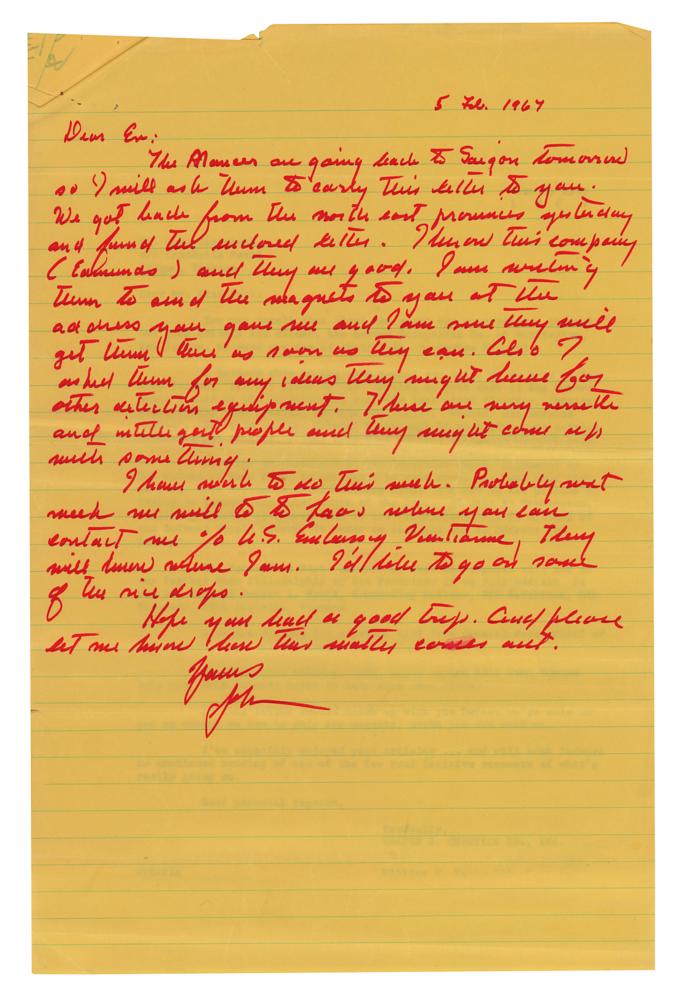 5 Feb. 1967
Dear Ev:
The Mances are going back to Saigon tomorrow
so I will ask them to carry this letter to you.
We got back from the north east provinces yesterday
and found the enclosed letter. I know this company
(Edmunds) and they are good. I am writing
them to send the magnets to you at the
address you gave me and I am sure they will
get them there as soon as they can. Also I
asked them for any ideas they might have for
other detection equipment. These are very versatile
and intelligent people and they might come up
with something.
I have work to do this week. Probably next
week we will to to Laos where you can
contact me c/o U.S. Embassy Vientiane, They
will know where I am. I'd like to go on some
of the rice drops.
Hope you had a good trip. And please
let me know how this matter comes out.
Yours
John